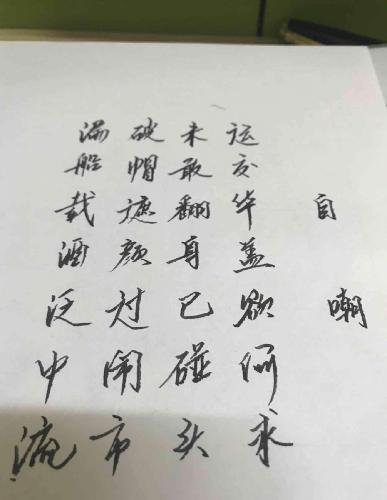 自嘲
运交华盖欲何求
未敢翻身已碰头
破帽遮颜过闹市
漏船载酒泛中流